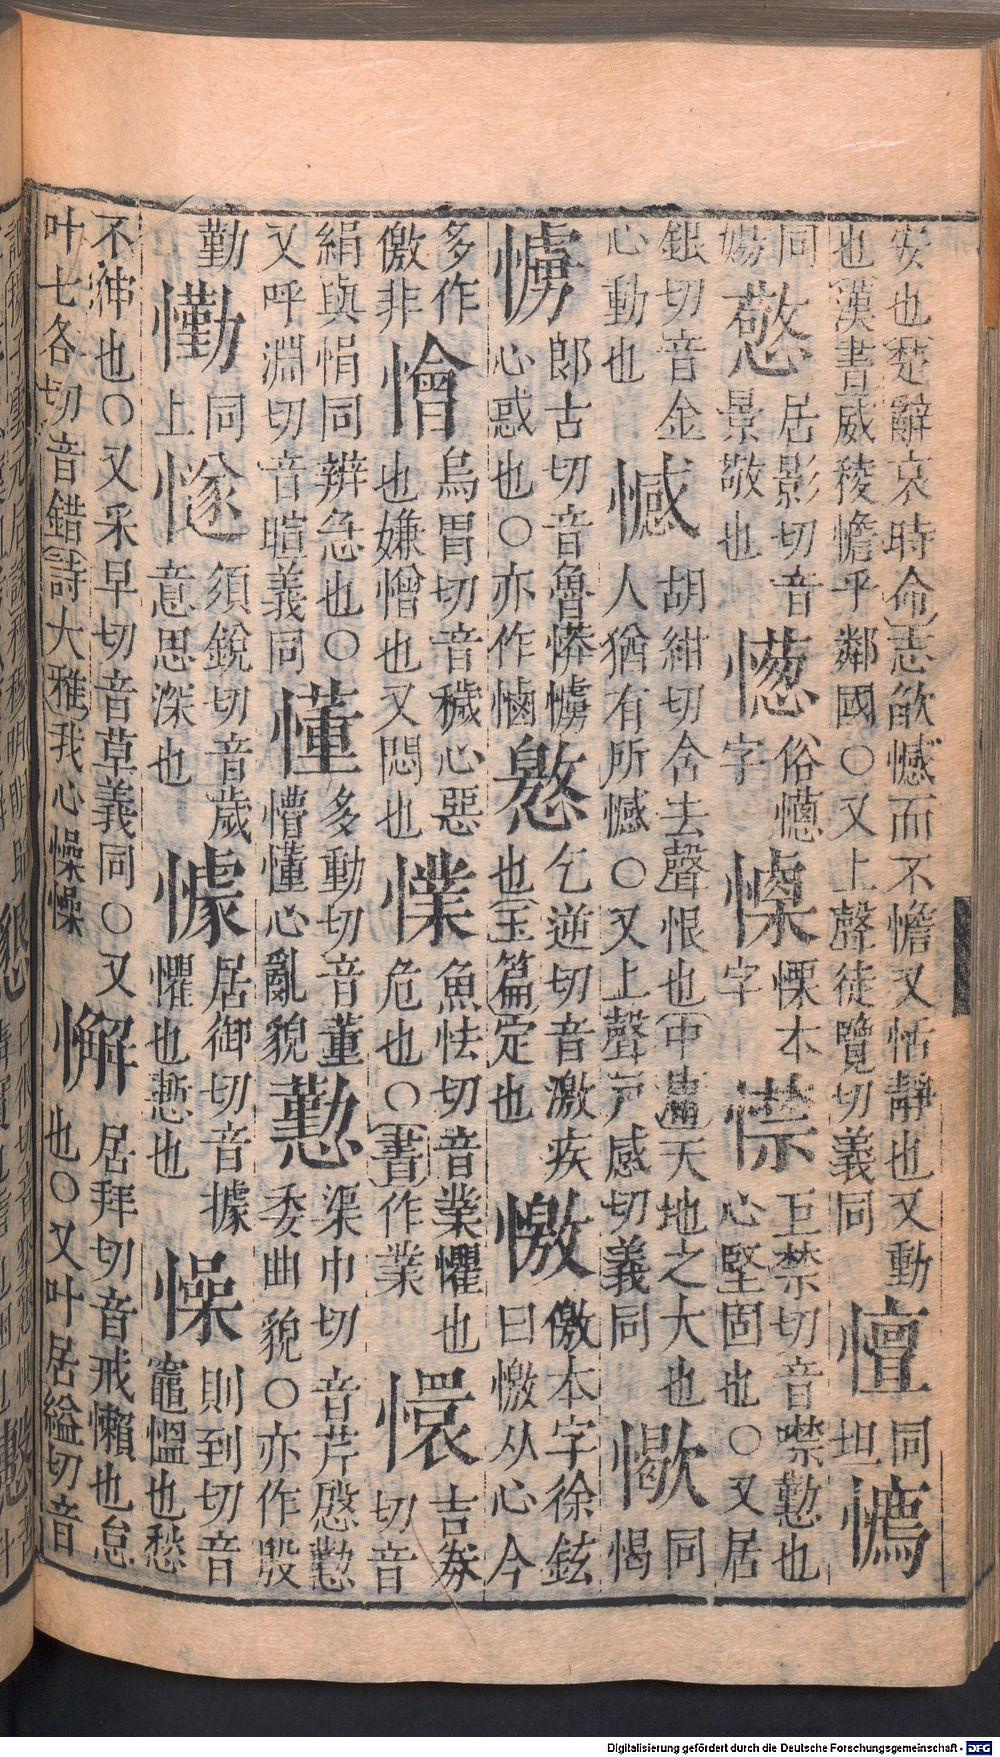 安也(楚辭哀時命)志欿憾而不憺又恬靜也又動也(漢書)威稜憺乎鄰國○又上聲徒覽切義同 憻 同坦
同 憼 居影切音景敬也 俗字 慄本字 巨禁切音噤懃也心堅固也○又居
銀切音金心動也 憾 胡紺切含去聲恨也(中庸)天地之大也人猶有所憾○又上聲戸感切義同 同愒
郎古切音魯 心惑也○亦作 乞逆切音激疾也(玉篇)定也 憿 儌本字徐鉉曰憿从心今
多作儌非 懀 烏胃切音穢心惡也嫌憎也又悶也 魚怯切音業懼也危也○(書)作業 懁 吉券切音
絹與悁同辨急也○又呼淵切音暄義同 懂 多動切音董懵懂心亂貌 懃 渠巾切音芹慇懃委曲貌○亦作殷
勤 懄 同上 須銳切音歲意思深也 懅 居御切音據懼也慙也 懆 則到切音竈慍也愁
不伸也○又采早切音草義同○又叶七各切音錯(詩大雅)我心懆懆 懈 居拜切音戒懶也怠也○又叶居縊切音
Digitalisierung gefördert durch die Deutsche Forschungsgemeinschaft - DFG